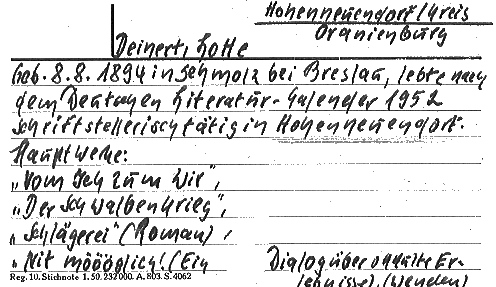 Hohenneuendorf/Kreis
Oranienburg
Deinert, Lotte
Geb. 8.8.1894 in Schmolz bei Breslau, lebte nach
dem Deutschen Literatur-Kalender 1952
schriftstellerisch tätig in Hohenneuendorf.
Hauptwerke:
"Vom Ich zum Wir",
"Der Schwalbenkrieg",
"Schlägerei" (Roman),
"Nit möööglich! (Ein Dialog über
Reg. 10. Stichnote 1. 50. 232 000. A. 803. S. 4062